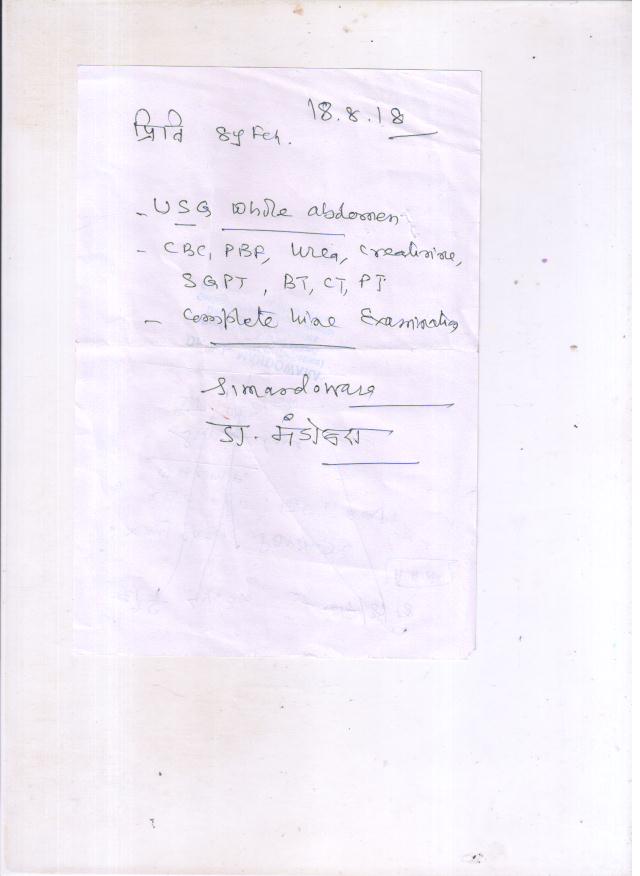 18.8.18
प्रिति 8y Feh.
- USG Whole abdomen
- CBC, PBF, Urea, Creatinine,
SGPT, BT, CT, PT
- Complete Urine Examination
डा. मंडोवरा